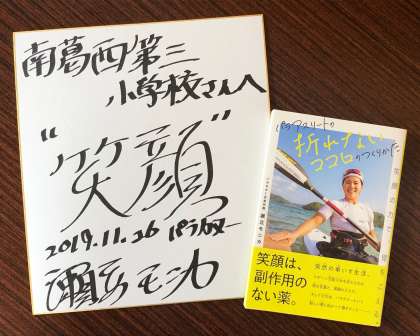 南葛西第三
小学校さんへ
“笑顔”
2019.11.26
瀬立モニカ
パラアスリートの
折れない
ココロのつくりかた
瀬立モニカ
笑顔は、
副作用の
ない薬。
突然の車いす生活。